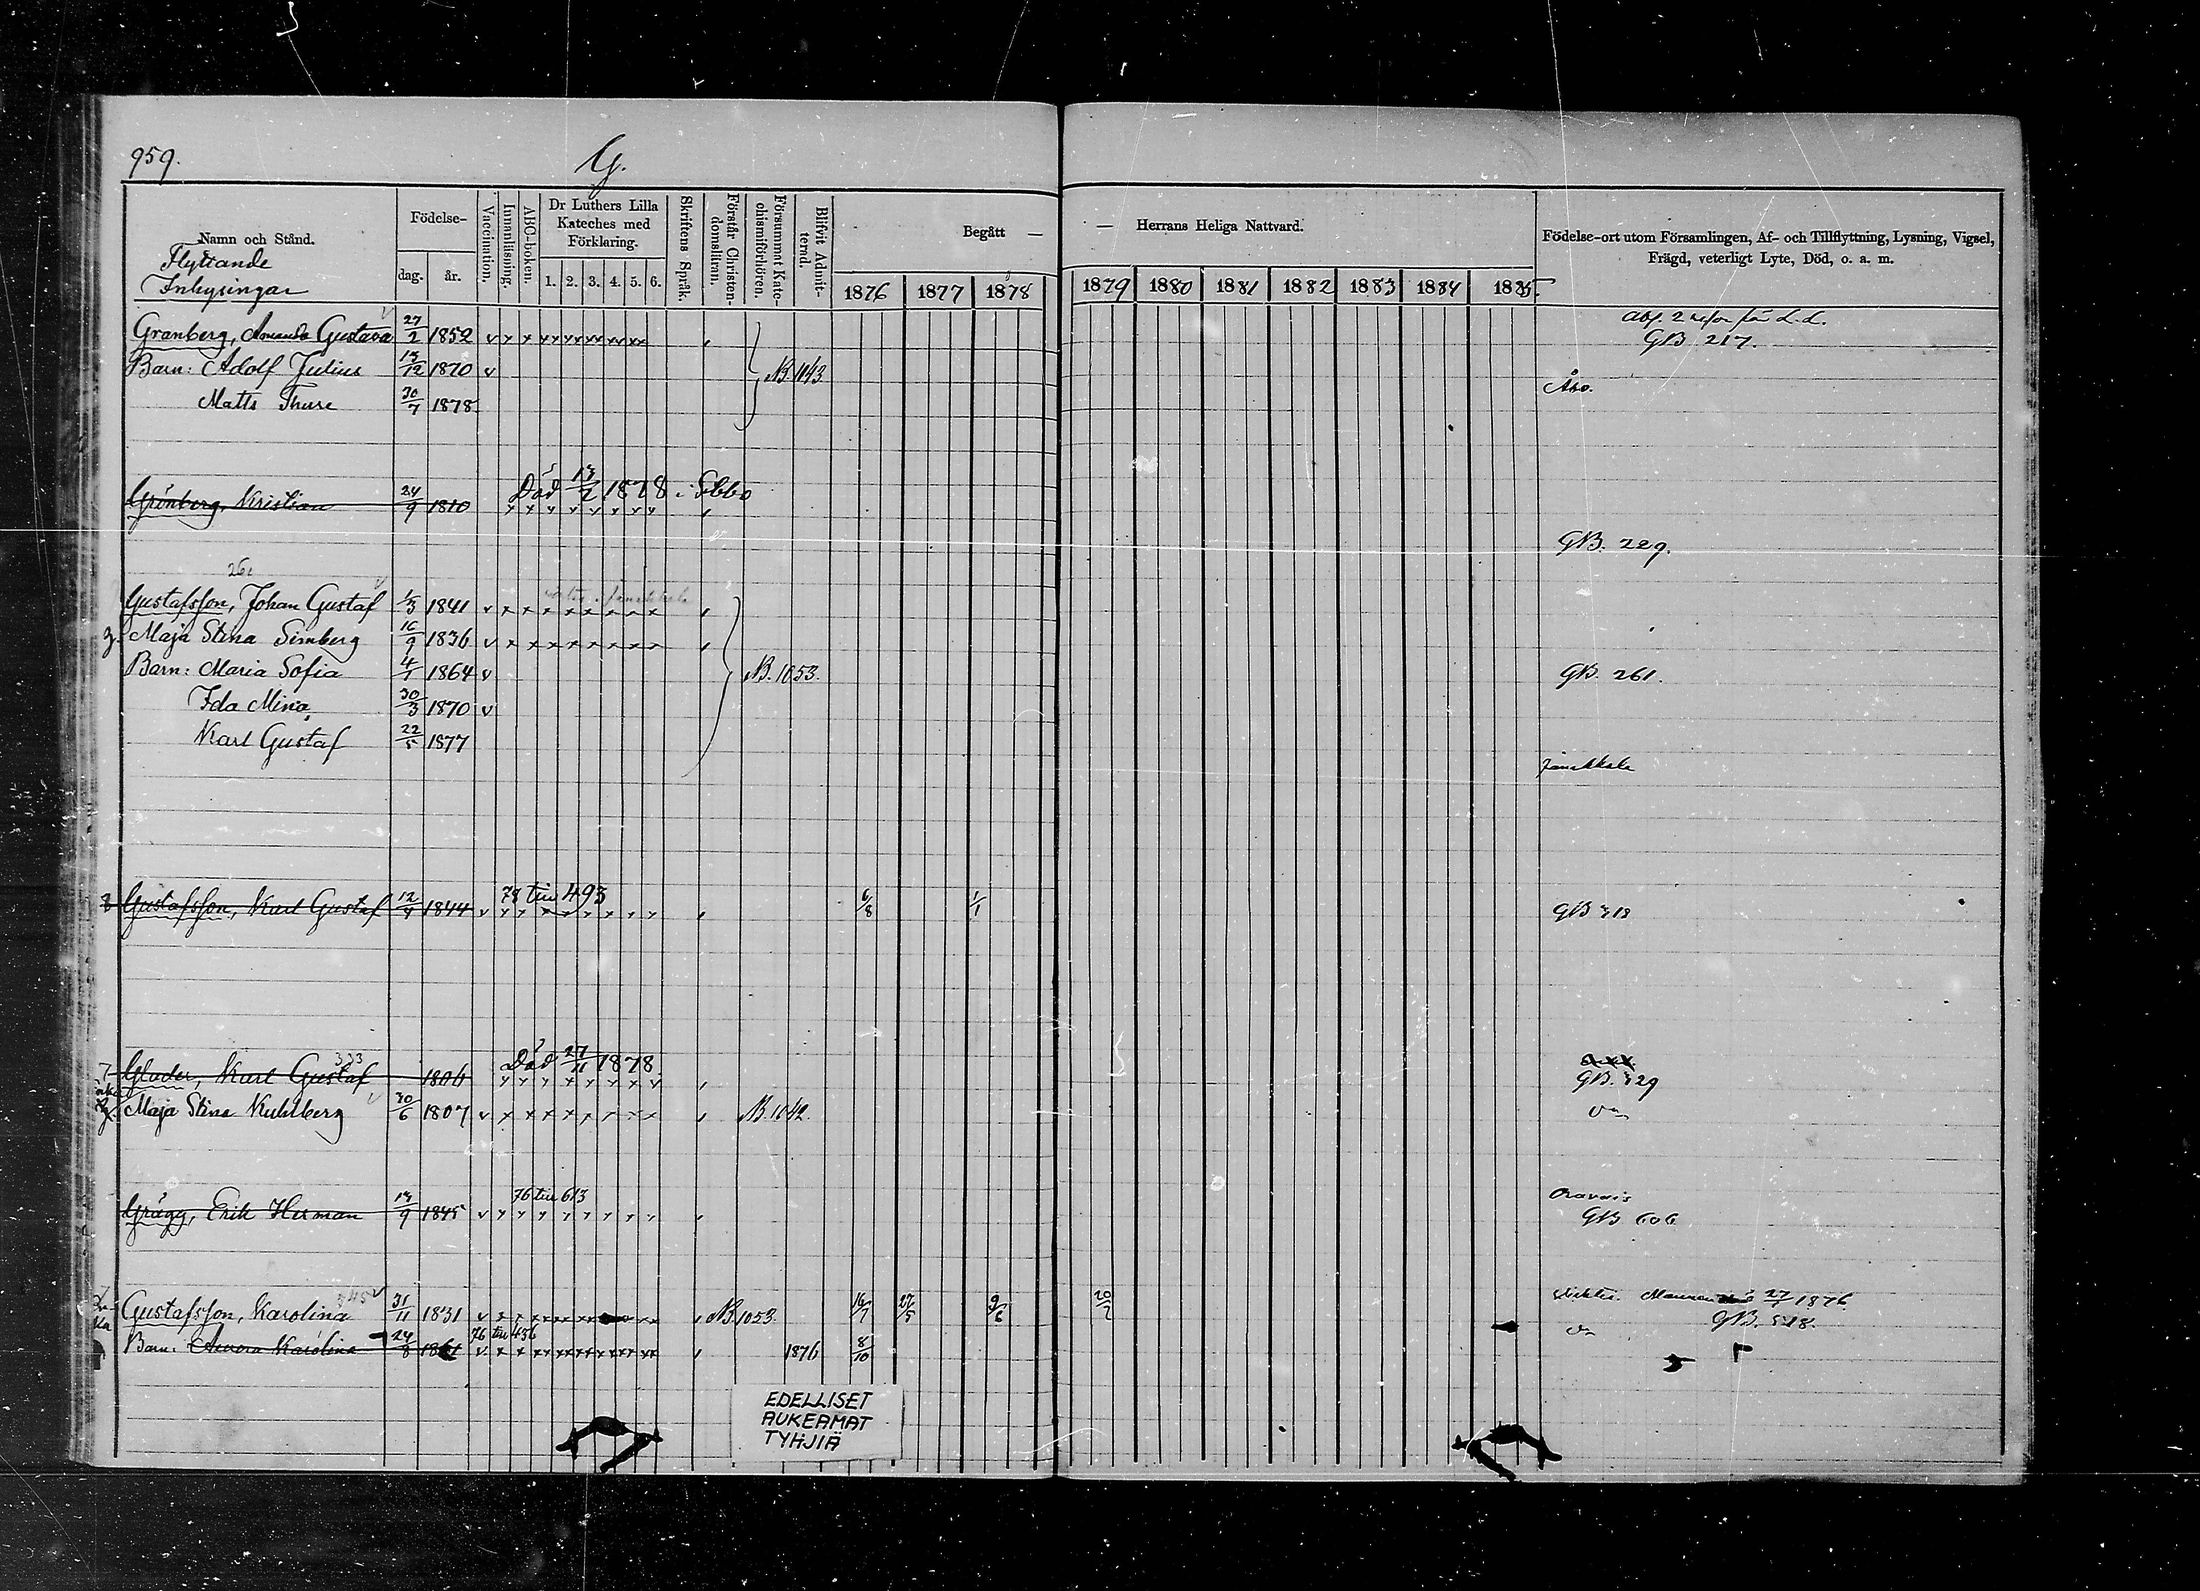 959.
G.
Namn och Stånd.
Flyttande
Inhysingar
Födelse-
dag.
år.
Vaccination.
Innanläsning.
ABC-boken.
Dr Luthers Lilla Kateches med Förklaring.
1. 2. 3. 4. 5. 6.
Skriftens Språk.
Förstår Christendomsläran.
Försummat Katechismiförhören.
Blifvit Admitterad.
Begått —
1876 1877 1878
— Herrans Heliga Nattvard.
1879 1880 1881 1882 1883 1884 1885
Födelse-ort utom Församlingen, Af- och Tillflyttning, Lysning, Vigsel,
Frägd, veterligt Lyte, Död, o. a. m.
Granberg, Amanda Gustava 27/2 1852 GB 217.
Barn: Adolf Julius 13/12 1870 v NB. 1043 Åbo.
Matts Thure 30/7 1878
Död 13/2 1878 i Sibbo
Grönberg, Kristian 24/9 1810
GB. 229.
261
Gustafsson, Johan Gustaf 1/3 1841
Maja Stina Simberg 16/9 1836
Barn: Maria Sofia 4/1 1864 v NB. 1053. GB. 261.
Ida Mina 30/3 1870 v
Karl Gustaf 22/5 1877
Janakkala
78 till 493
Gustafsson, Karl Gustaf 12/4 1844 6/8 1/1 GB 313
333
Död 27/11 1878
Glader, Karl Gustaf 1806 GB. 329
Maja Stina Kuhlberg 30/6 1807 NB. 1042.
76 till 613 Oravais
Grägg, Erik Herman 13/9 1845 GB 606
Gustafsson, Karolina 31/11 1831 NB. 1053. 16/7 27/5 9/6 20/7 27/1 1876
GB. 518.
76 till 436
Barn: Aurora Karolina 24/8 1861 1876 8/10
EDELLISET
AUKEAMAT
TYHJIÄ